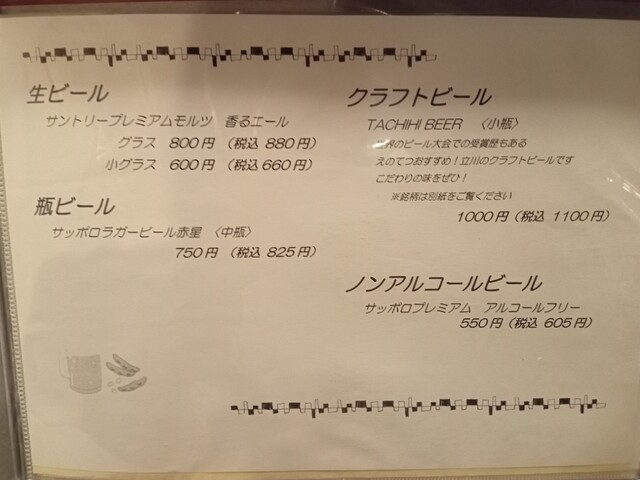 生ビール
サントリープレミアムモルツ 香るエール
グラス 800円 (税込 880円)
小グラス 600円 (税込 660円)
瓶ビール
サッポロラガービール赤星 〈中瓶〉
750円 (税込 825円)
クラフトビール
TACHIHI BEER 〈小瓶〉
界のビール大会での受賞歴もある
えのてつおすすめ!立川のクラフトビールです
こだわりの味をぜひ!
※銘柄は別紙をご覧ください
1000円(税込 1100円)
ノンアルコールビール
サッポロプレミアム アルコールフリー
550円(税込 605円)